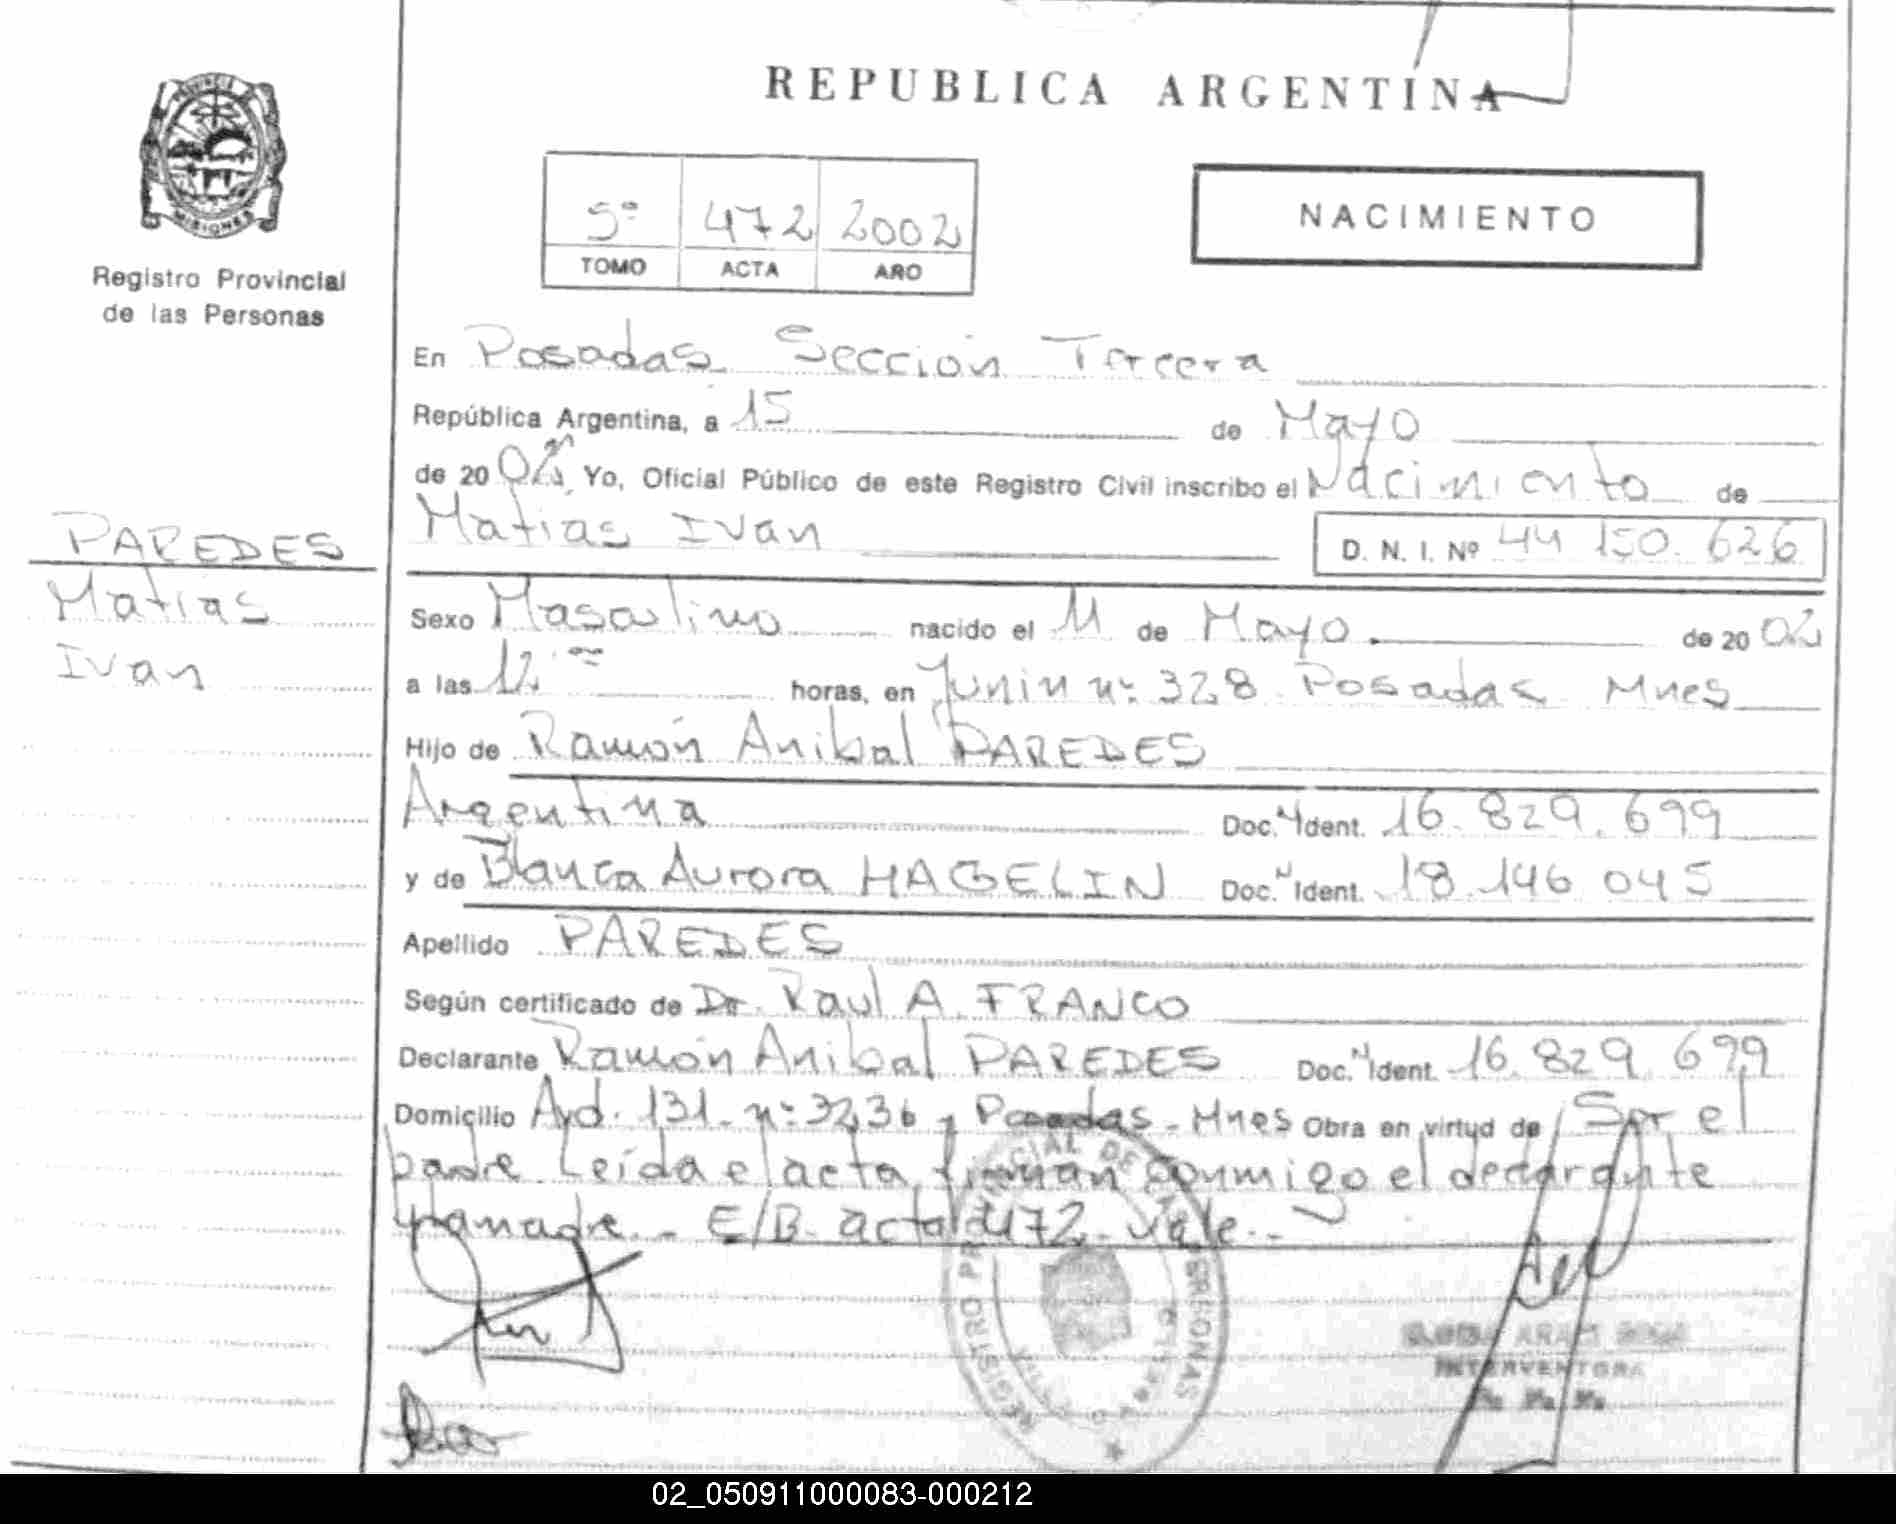 REPUBLICA ARGENTINA
PROVINCIA
MISIONES
Registro Provincial
de las Personas
5º 472 2002
TOMO ACTA AÑO
NACIMIENTO
En Posadas Sección Tercera
República Argentina, a 15 de Mayo
de 20 02 Yo, Oficial Público de este Registro Civil inscribo el Nacimiento de
Matias Ivan D. N. I. Nº 44 150.626
PAREDES
Matias
Ivan
Sexo Masculino nacido el 11 de Mayo de 20 02
a las 12 horas, en Junin nº 328 Posadas Mnes
Hijo de Ramón Anibal PAREDES
Argentina Doc. N Ident. 16.829.699
y de Blanca Aurora HAGELIN Doc. N Ident. 18.146 045
Apellido PAREDES
Según certificado de Dr. Raul A. FRANCO
Declarante Ramón Anibal PAREDES Doc. N Ident. 16.829.699
Domicilio Avd. 131 nº 3236 Posadas - Mnes Obra en virtud de Ser el
padre Leída el acta, firman conmigo el declarante
y la madre. - E/B acta 472 - Vale. -
REGISTRO PROVINCIAL DE LAS PERSONAS
INTERVENTORA
02_050911000083-000212